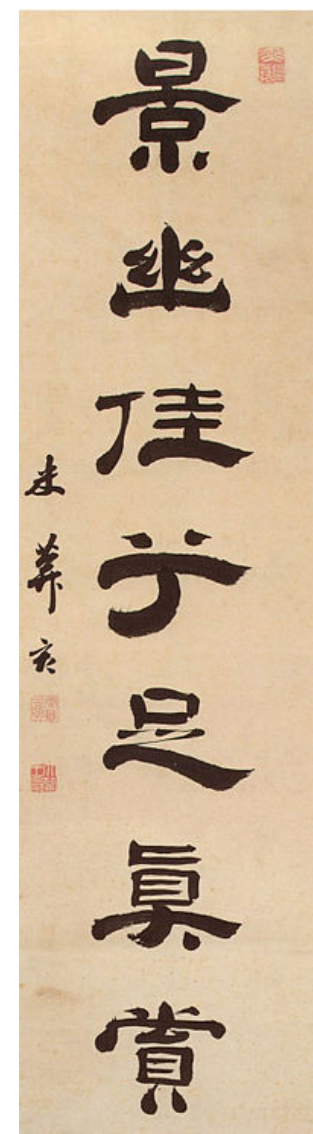 景幽佳兮足眞賞
米葊亥